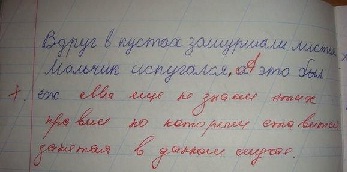 Вдруг в кустах зашуршали листья
Мальчик испугался, а это был
ёж Мы ещё не знаем таких
правил по которым ставится
запятая в данном случае.